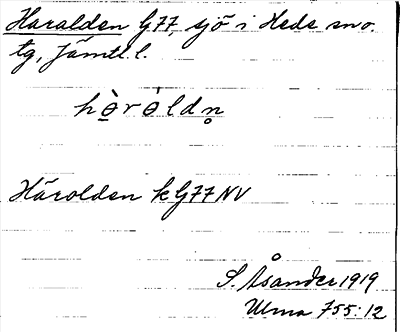 Haralden G77, sjö i Hede sno.
tg, Jämtl. l.
hə̀rə́ldn̥
Härolden k G77 NV
S. Åsander 1919
Ulma 755:12